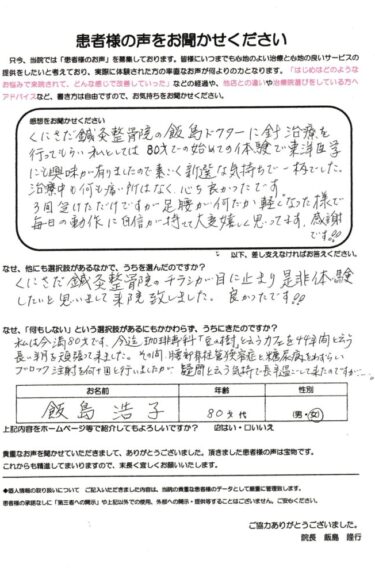 患者様の声をお聞かせください
只今、当院では「患者様のお声」を募集しております。皆様にいつまでも心地のよい治療と心地の良いサービスの
提供をしたいと考えており、実際に体験された方の率直なお声が何よりの力となります。「はじめはどのような
お悩みで来院されて、どんな感じで改善していった」などの経過や、他店との違いや治療院選びをしている方へ
アドバイスなど、書き方は自由ですので、お気持ちをお聞かせください。
感想をお聞かせください
くにさだ鍼灸整骨院の飯島ドクターに針治療を
行ってもらい私としては80才での始めての体験で東洋医学
にも興味が有りましたので素い新鮮な気持ちで一杯でした。
治療中も何も痛い所はなく、心ち良かったです。
3回受けただけですが足腰が何だか軽くなった様で
毎日の動作に自信が持てて大変嬉しく思ってます。感謝
です!!
以下、差し支えなければお答えください。
なぜ、他にも選択肢があるなかで、うちを選んだのですか?
くにさだ鍼灸整骨院のチラシが目に止まり是非体験
したいと思いまして来院致しました。良かったです!!
なぜ、「何もしない」という選択肢があるにもかかわらず、うちにきたのですか?
私は今満80才です。今迄珈琲専科「豆の樹」と云うカフェを44年間と云う
長い年月を頑張って来ました。その間、腰部脊柱管狭窄症と糖尿病をわずらい
ブロック注射を何十回と行いましたが、疑問と云う気持で長年過ごして来たのですが…
お名前 年齢 性別
飯島浩子 80才代 (男・女)
上記内容をホームページ等で紹介してもよろしいですか? ☑はい・□いいえ
貴重なお声を聞かせていただきまして、ありがとうございました。頂きました患者様の声は宝物です。
これからも精進してまいりますので、末長く宜しくお願いいたします。
◆個人情報の取り扱いについて ご記入いただきました内容は、当院の貴重な患者様のデータとして厳重に管理致します。
患者様の承諾なしに「第三者への開示」や上記以外での使用、外部への開示・提供等することはございません。ご安心ください。
ご協力ありがとうございました。
院長 飯島 隆行